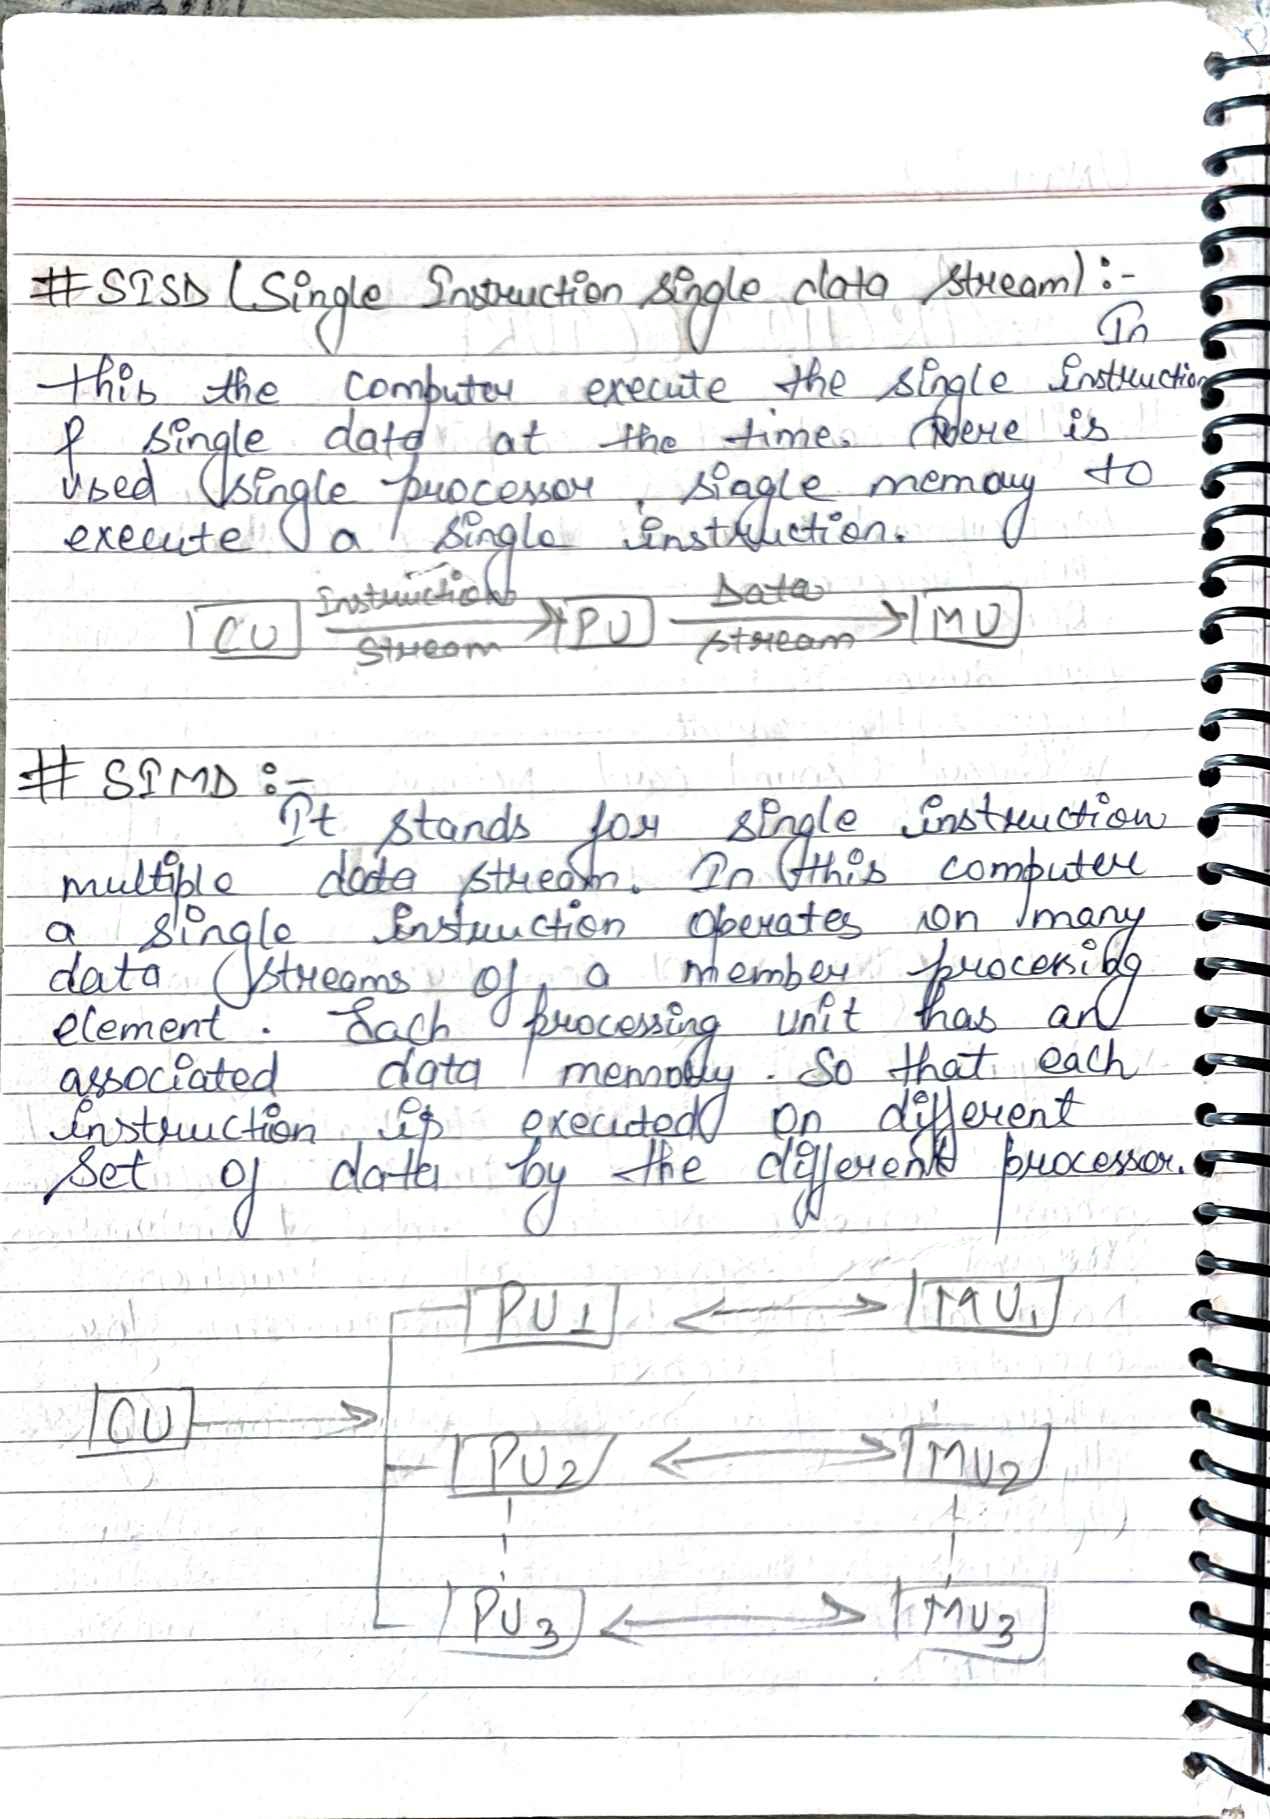 # SISD (Single Instruction single data stream) :-
In
this the computer execute the single instruction
& single data at the time. Here is
used single processor, single memory to
execute a single instruction.
CU Instruction Stream PU Data stream MU
# SIMD :-
It stands for single instruction
multiple data stream. In this computer
a single instruction operates on many
data streams of a member processing
element. Each processing unit has an
associated data memory. So that each
instruction is executed on different
set of data by the different processor.
PU1 MU1
CU
PU2 MU2
PU3 MU3